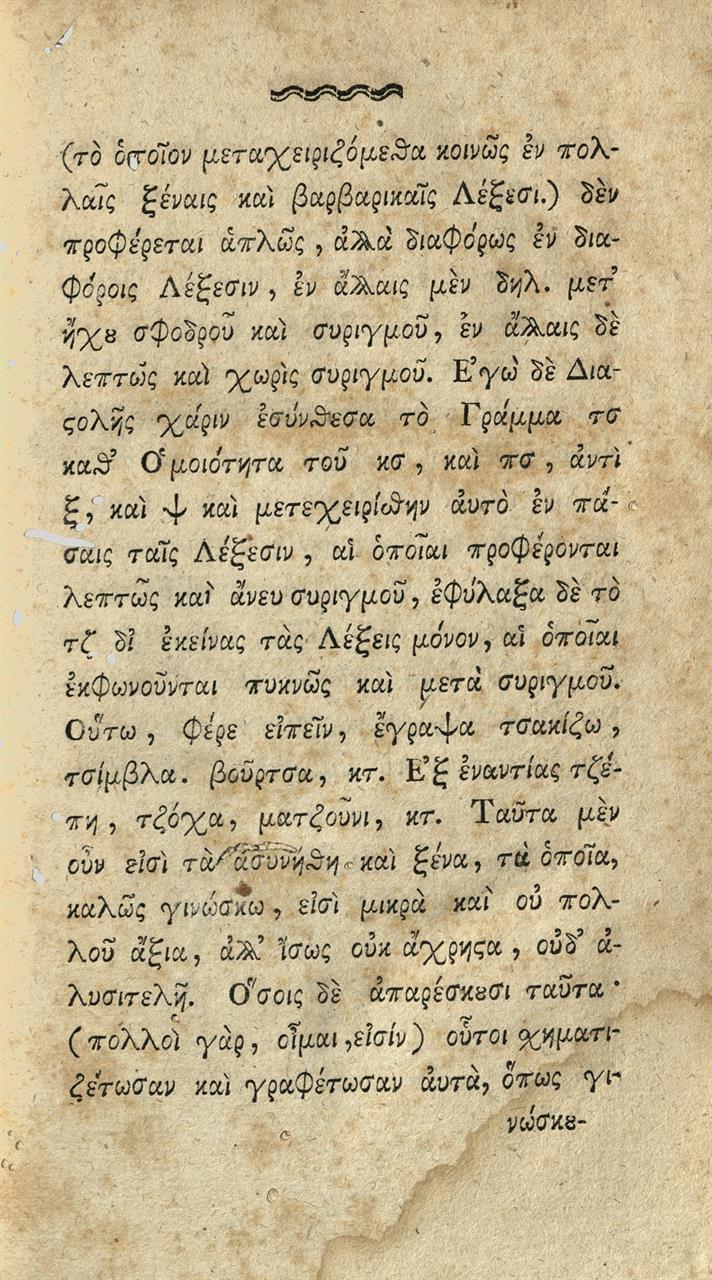 (τὸ ὁποῖον μεταχειριζόμεθα κοινῶς ἐν πολ-
λαῖς ξέναις καὶ βαρβαρικαῖς Λέξεσι.) δὲν
προφέρεται ἁπλῶς, ἀλλὰ διαφόρως ἐν δια-
φόροις Λέξεσιν, ἐν ἄλλαις μὲν δηλ. μετ᾽
ἤχȣ σφοδροῦ καὶ συριγμοῦ, ἐν ἄλλαις δὲ
λεπτῶς καὶ χωρὶς συριγμοῦ. Ἐγὼ δὲ Δια-
ϛολῆς χάριν ἐσύνθεσα τὸ Γράμμα τσ
καθ᾽ Ὁμοιότητα τοῦ κσ, καὶ πσ, ἀντὶ
ξ, καὶ ψ καὶ μετεχειρίσθην ἀυτὸ ἐν πά-
σαις ταῖς Λέξεσιν, αἱ ὁποῖαι προφέρονται
λεπτῶς καὶ ἄνευ συριγμοῦ, ἐφύλαξα δὲ τὸ
τζ δἰ ἐκείνας τὰς Λέξεις μόνον, αἱ ὁποῖαι
ἐκφωνοῦνται πυκνῶς καὶ μετὰ συριγμοῦ.
Οὕτω, φέρε εἰπεῖν, ἔγραψα τσακίζω,
τσίμβλα. βοῦρτσα, κτ. Ἐξ ἐναντίας τζέ-
πη, τζόχα, ματζοῦνι, κτ. Ταῦτα μὲν
οὖν εἰσὶ τὰ ἀσυνήθη καὶ ξένα, τὰ ὁποῖα,
καλῶς γινώσκω, εἰσὶ μικρὰ καὶ οὐ πολ-
λοῦ ἄξια, ἀλλ᾽ ἴσως οὐκ ἄχρηϛα, οὐδ᾽ ἀ-
λυσιτελῆ. Ὅσοις δὲ ἀπαρέσκȣσι ταῦτα·
(πολλοὶ γὰρ, οἶμαι, εἰσίν) οὗτοι χηματι-
ζέτωσαν καὶ γραφέτωσαν ἀυτὰ, ὅπως γι-
νώσκȣ-